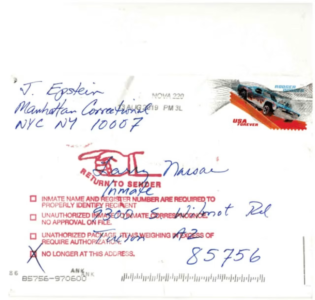 J. Epstein
Manhattan Correctional
NYC NY 10007
NOVA 220
2019 PM 3 L
USA
FOREVER
RETURN TO SENDER
Larry Nassar
Inmate
INMATE NAME AND REGISTER NUMBER ARE REQUIRED TO
PROPERLY IDENTIFY RECIPIENT
UNAUTHORIZED INMATE CORRESPONDENCE.
NO APPROVAL ON FILE.
9300 S Wilmot Rd
UNAUTHORIZED PACKAGE. ITEMS WEIGHING EXCESS OF
REQUIRE AUTHORIZATION.
Tucson AZ
85756
X NO LONGER AT THIS ADDRESS.
ANK
85756-970600